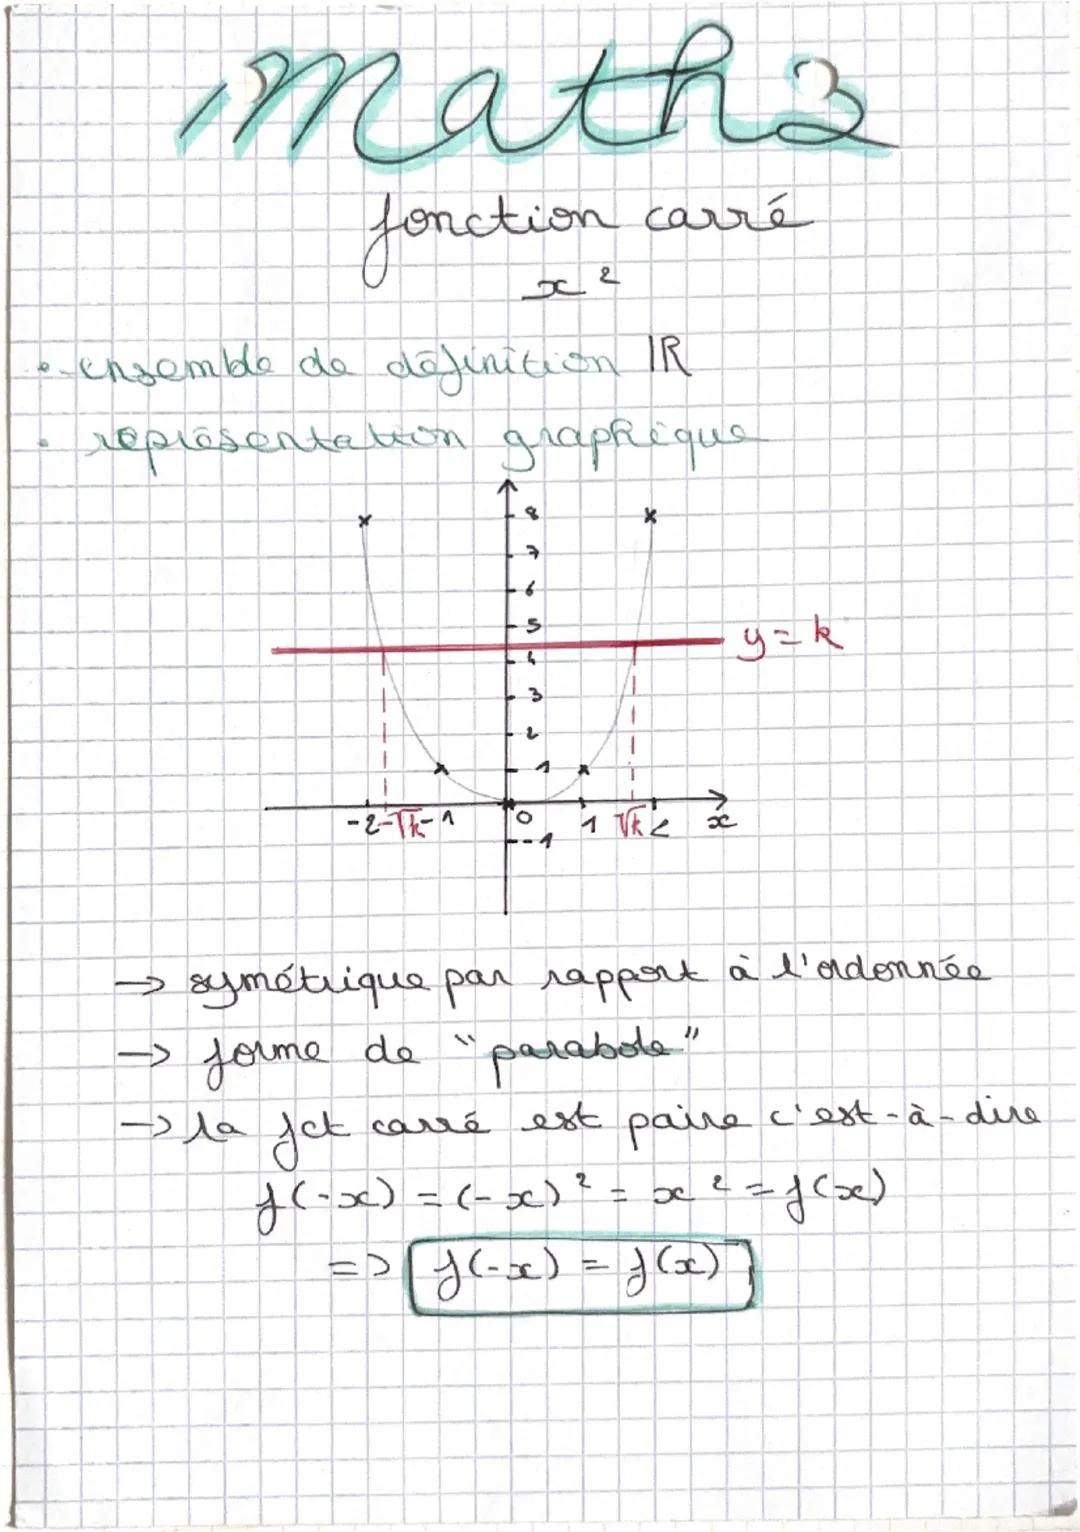 Maths
fonction carré
x²
• ensemble de définition ℝ
• représentation graphique
8
7
6
5
y = k
4
3
2
1
-2 -√k -1 0 1 √k 2 x
-1
→ symétrique par rapport à l'ordonnée
→ forme de "parabole"
→ la fct carré est paire c'est-à-dire
f(-x) = (-x)² = x² = f(x)
=> f(-x) = f(x)